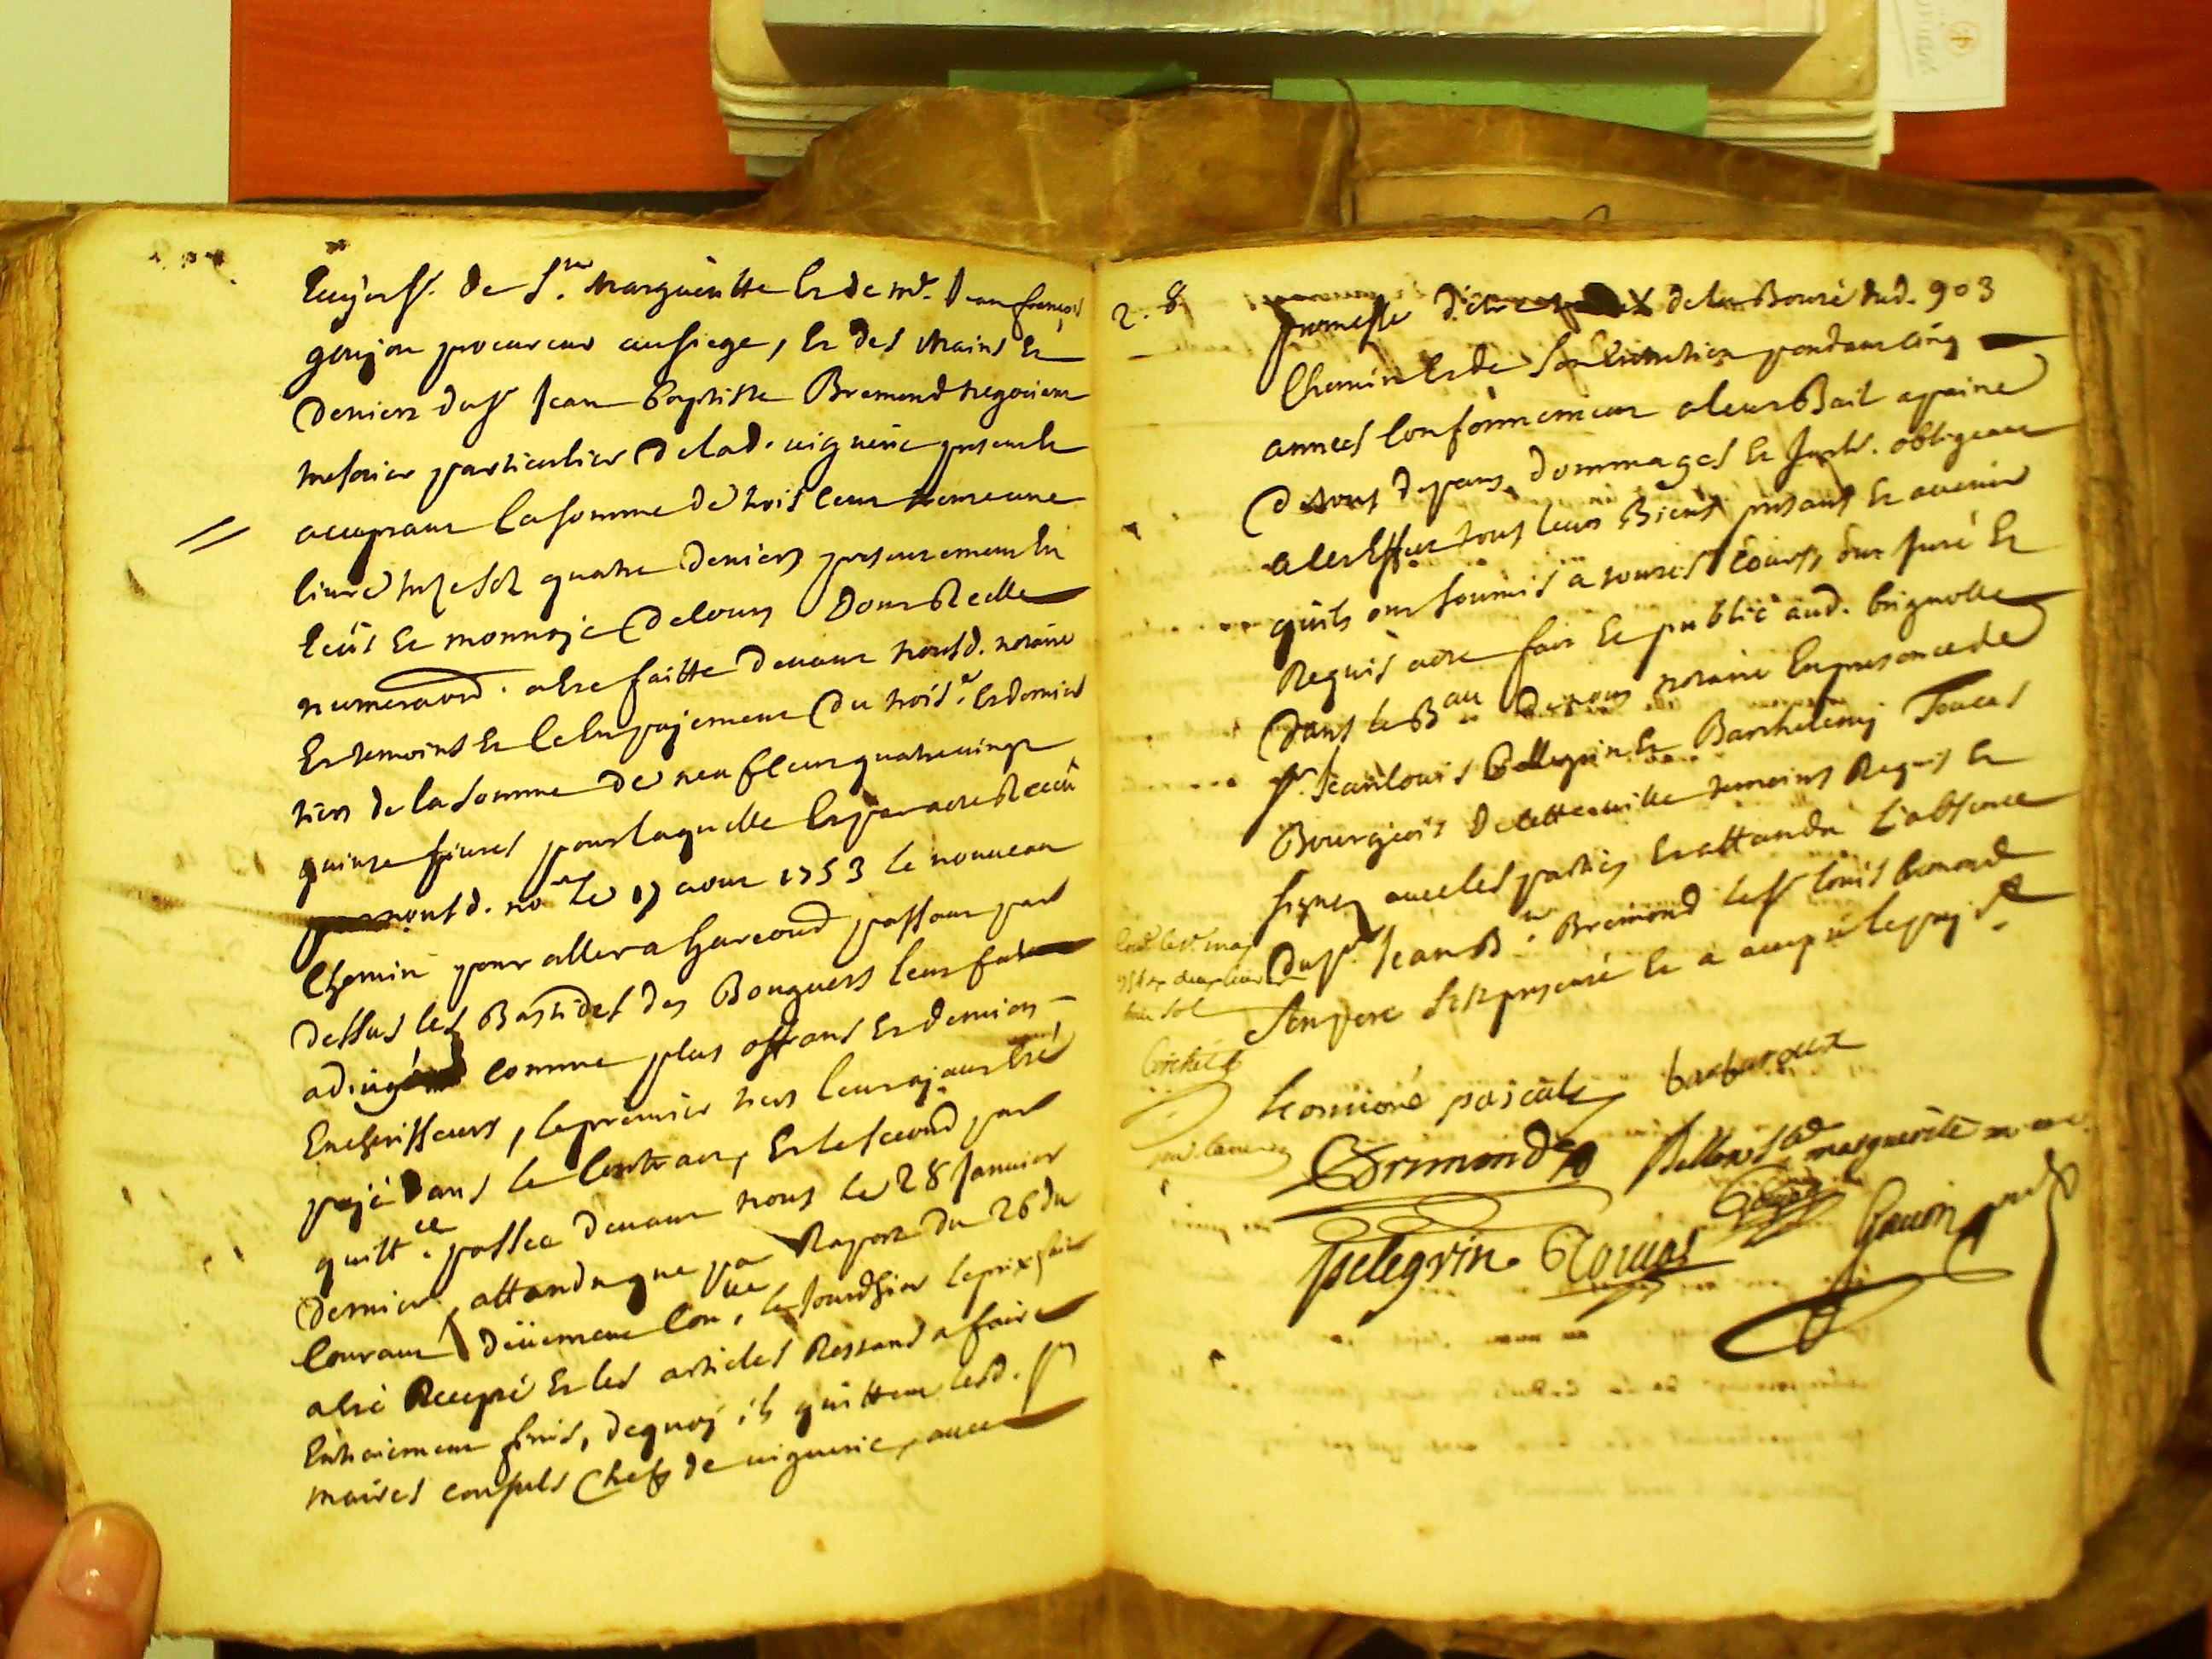 de Ste Marguéritte Et de me. Jean françois
goujon procureur au siege, Et des mains Et
Deniers du sr Jean Baptiste Bremond negotiant
tresorier particulier De lad. viguerie present Et
acceptant la somme de trois Cent trente une
livres treze sols quatre Deniers presentement En
Ecûs Et monnoje De Cours Dont Reelle
numeraôn. a Eté faitte Devant nousd. notaire
Et temoins Et C'Est En pajement Du troise. Et dernier
tiers de la somme De neuf Cent quatre vingt
quinze livres pour laquelle Et par acte Receu
par nousd. nore Le 17 aout 1753 le nouveau
Chemin pour aller a Garcoud passant par
Dessus les Bastides des Bouguers leur fut
adiugé comme plus offrans Et derniers
Encherisseurs, le premier tiers leur ajant Eté
pajé Dans le Contract, Et le second par
quittce. passée Devant nous Le 28 Janvier
Dernier, attandu que par Raport Du 26 du
Courant Düement Con. le jourdhier le prix fait
a Eté Recepté Et les articles Restans a faire
Entierement finis, de quoj ils quittent lesd. srs
maires consuls Chefs de viguerie, avec
2. 8
903
promesse D'Etre de la Bonté dud.
Chemin Et de son Entretien pendant Cinq
années Conformement a leur Bail a peine
De tous Depans, Dommages Et Intts. obligeant
a Cet Effet tous leurs Biens presans Et avenir
quils ont soumis a toutes Cours, ont juré Et
Requis acte fait Et publié aud. brignolle
Dans le Bau De nous notaire En presence de
sr. Jean louis Pellegrin Et Barthelemy Toucas
Bourgeois De cette ville temoins Requis Et
signez avec les parties Et attandu L'absence
Du sr. Jean Bte. Bremond le sr Louis bremond
son pere s'Est presenté Et a accepté le paj.
sol
pascal barbaroux
Bremond Ste marguerite
pelegrin Toucas